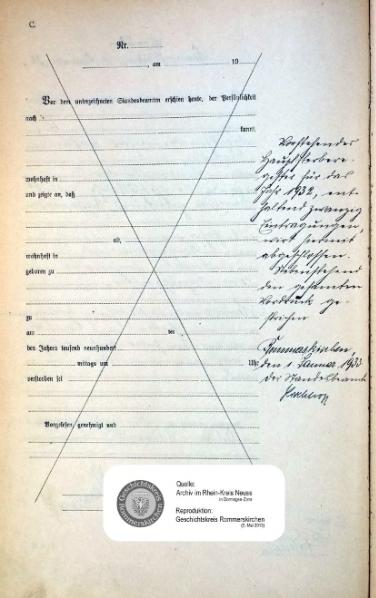 C.
Nr.
, am 19
Vor dem unterzeichneten Standesbeamten erschien heute, der Persönlichkeit
nach
kannt,
wohnhaft in
und zeigte an, daß
alt,
wohnhaft in
geboren zu
zu
am der
des Jahres tausend neunhundert
mittags um Uhr
verstorben sei
Vorgelesen, genehmigt und
Vorstehendes
Hauptsterbere-
gister für das
Jahr 1932, ent-
haltend zwanzig
Eintragungen,
wird hiermit
abgeschlossen.
Nebenstehend
den gesamten
Vordruck ge-
strichen
Rommerskirchen,
den 1. Januar 1933
Der Standesbeamte
Geschichtskreis
Rommerskirchen
Quelle:
Archiv im Rhein-Kreis Neuss
in Dormagen-Zons
Reproduktion:
Geschichtskreis Rommerskirchen